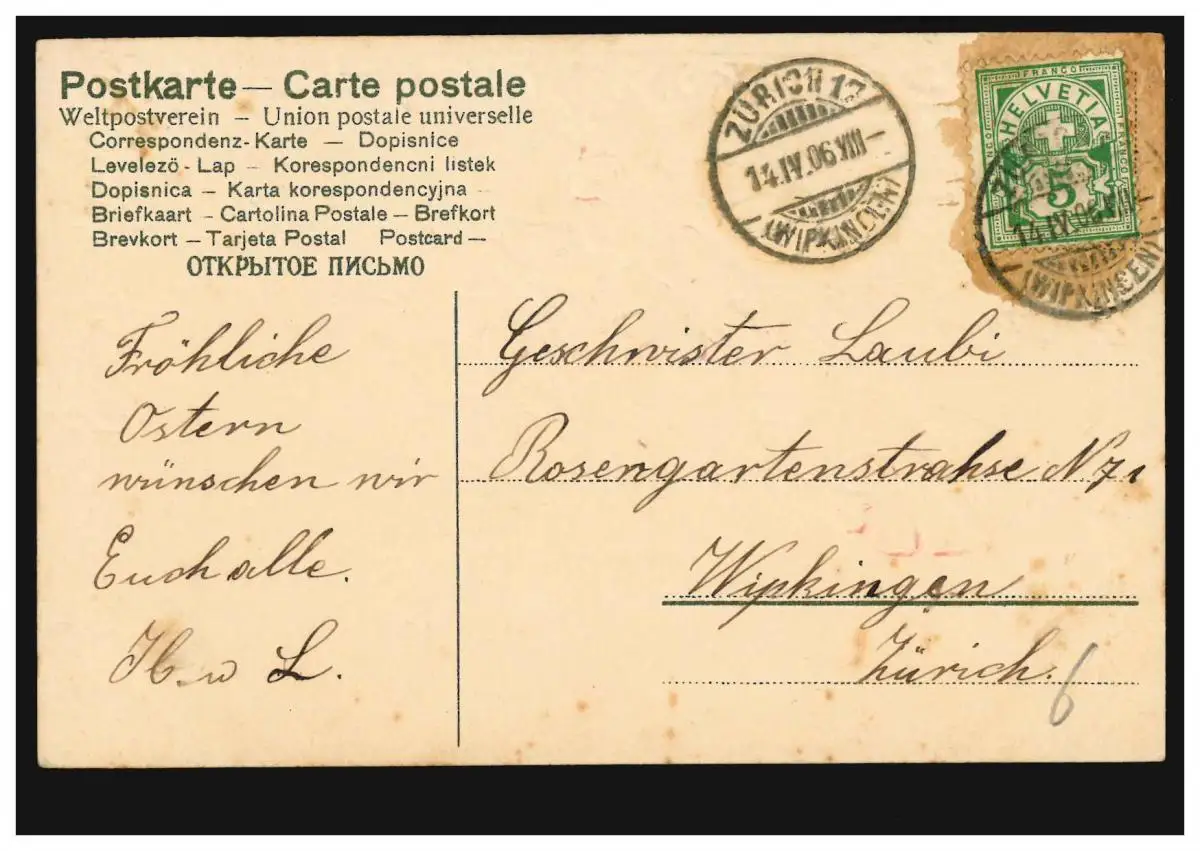 Postkarte — Carte postale
Weltpostverein – Union postale universelle
Correspondenz-Karte – Dopisnice
Levelező-Lap – Korespondencni listek
Dopisnica – Karta korespondencyjna
Briefkaart – Cartolina Postale – Brefkort
Brevkort – Tarjeta Postal Postcard –
ОТКРЫТОЕ ПИСЬМО
ZÜRICH 17
14.IV.06.XIII–
(WIPKINGEN)
FRANCO
HELVETIA
FRANCO
FRANCO
5
14.IV.06.XIII–
(WIPKINGEN)
Fröhliche
Ostern
wünschen wir
Euch alle.
H. u L.
Geschwister Laubi
Rosengartenstrahse N 71
Wipkingen
Zürich.
6